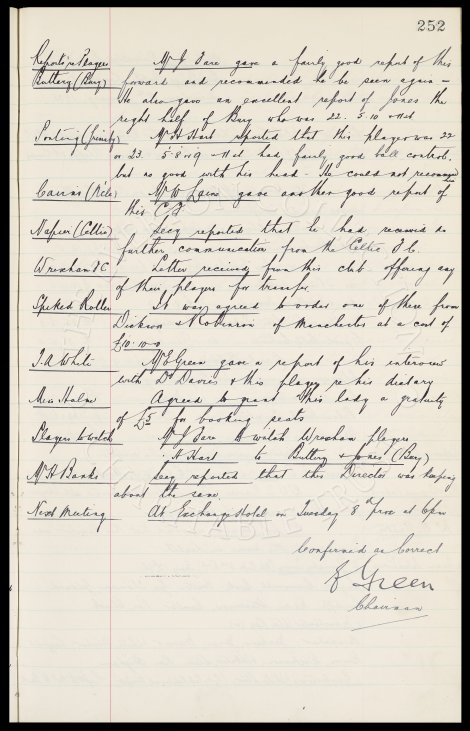 252
Reports re Players Mr J Fare gave a fairly good report of this
Buttery (Bury) forward and recommended he be seen again –
He also gave an excellent report of Jones the
right half of Bury who was 22. 5.10 11st
Ponting (Grimsby) Mr A Hart reported that this player was 22
or 23. 5.8 or 9 – 11st had fairly good ball control,
but no good with his head – He could not recommend
Cairns (Rile) Mr W gave another good report of
this C.F.
Napier (Celtic) Secy reported that he had received no
further communication from the Celtic F.C.
Wrexham FC Letter received from this club offering any
of their players for transfer
Spiked Roller It was agreed to order one of these from
Dickson & Robinson of Manchester at a cost of
£10.10.0
T.A White Mr E Green gave a report of his interview
with Dr Davies & this player re his dietary
Miss Halme Agreed to grant this lady a gratuity
of £5 for booking seats
Players to watch Mr J Fare to watch Wrexham players
" A Hart to Buttery & Jones (Bury)
Mr H Banks Secy reported that this Director was keeping
about the same.
Next Meeting At Exchange Hotel on Tuesday 8th prox at 6pm
Confirmed as Correct
E Green
Chairman